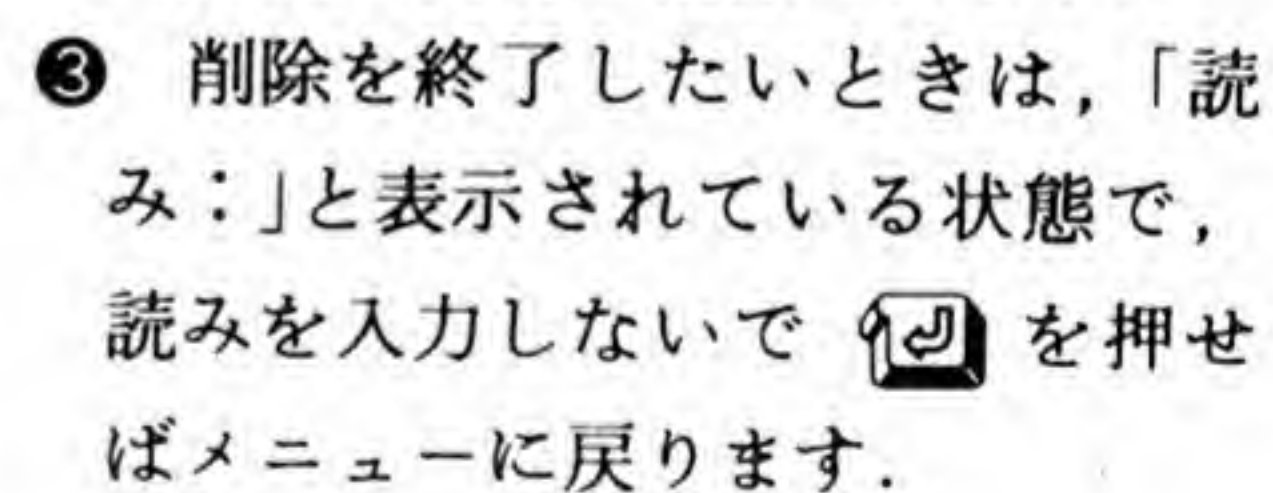 ❸ 削除を終了したいときは，「読
み：」と表示されている状態で，
読みを入力しないで ↵ を押せ
ばメニューに戻ります．